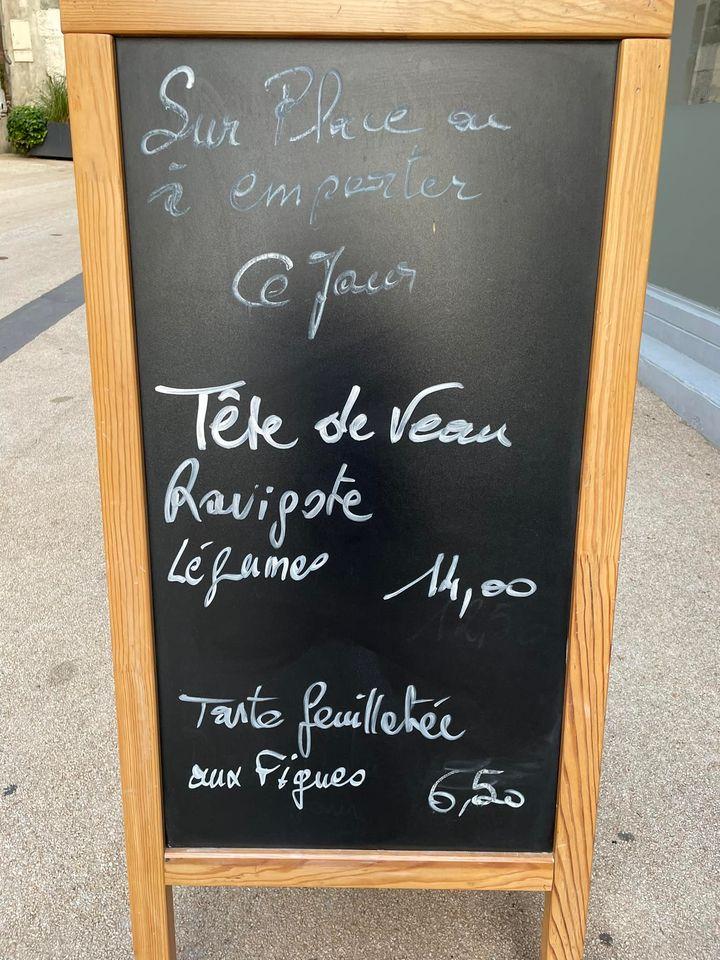 Sur Place ou
à emporter
Ce Jour
Tête de Veau
Ravigote
Légumes 14,00
Tarte feuilletée
aux Figues 6,50